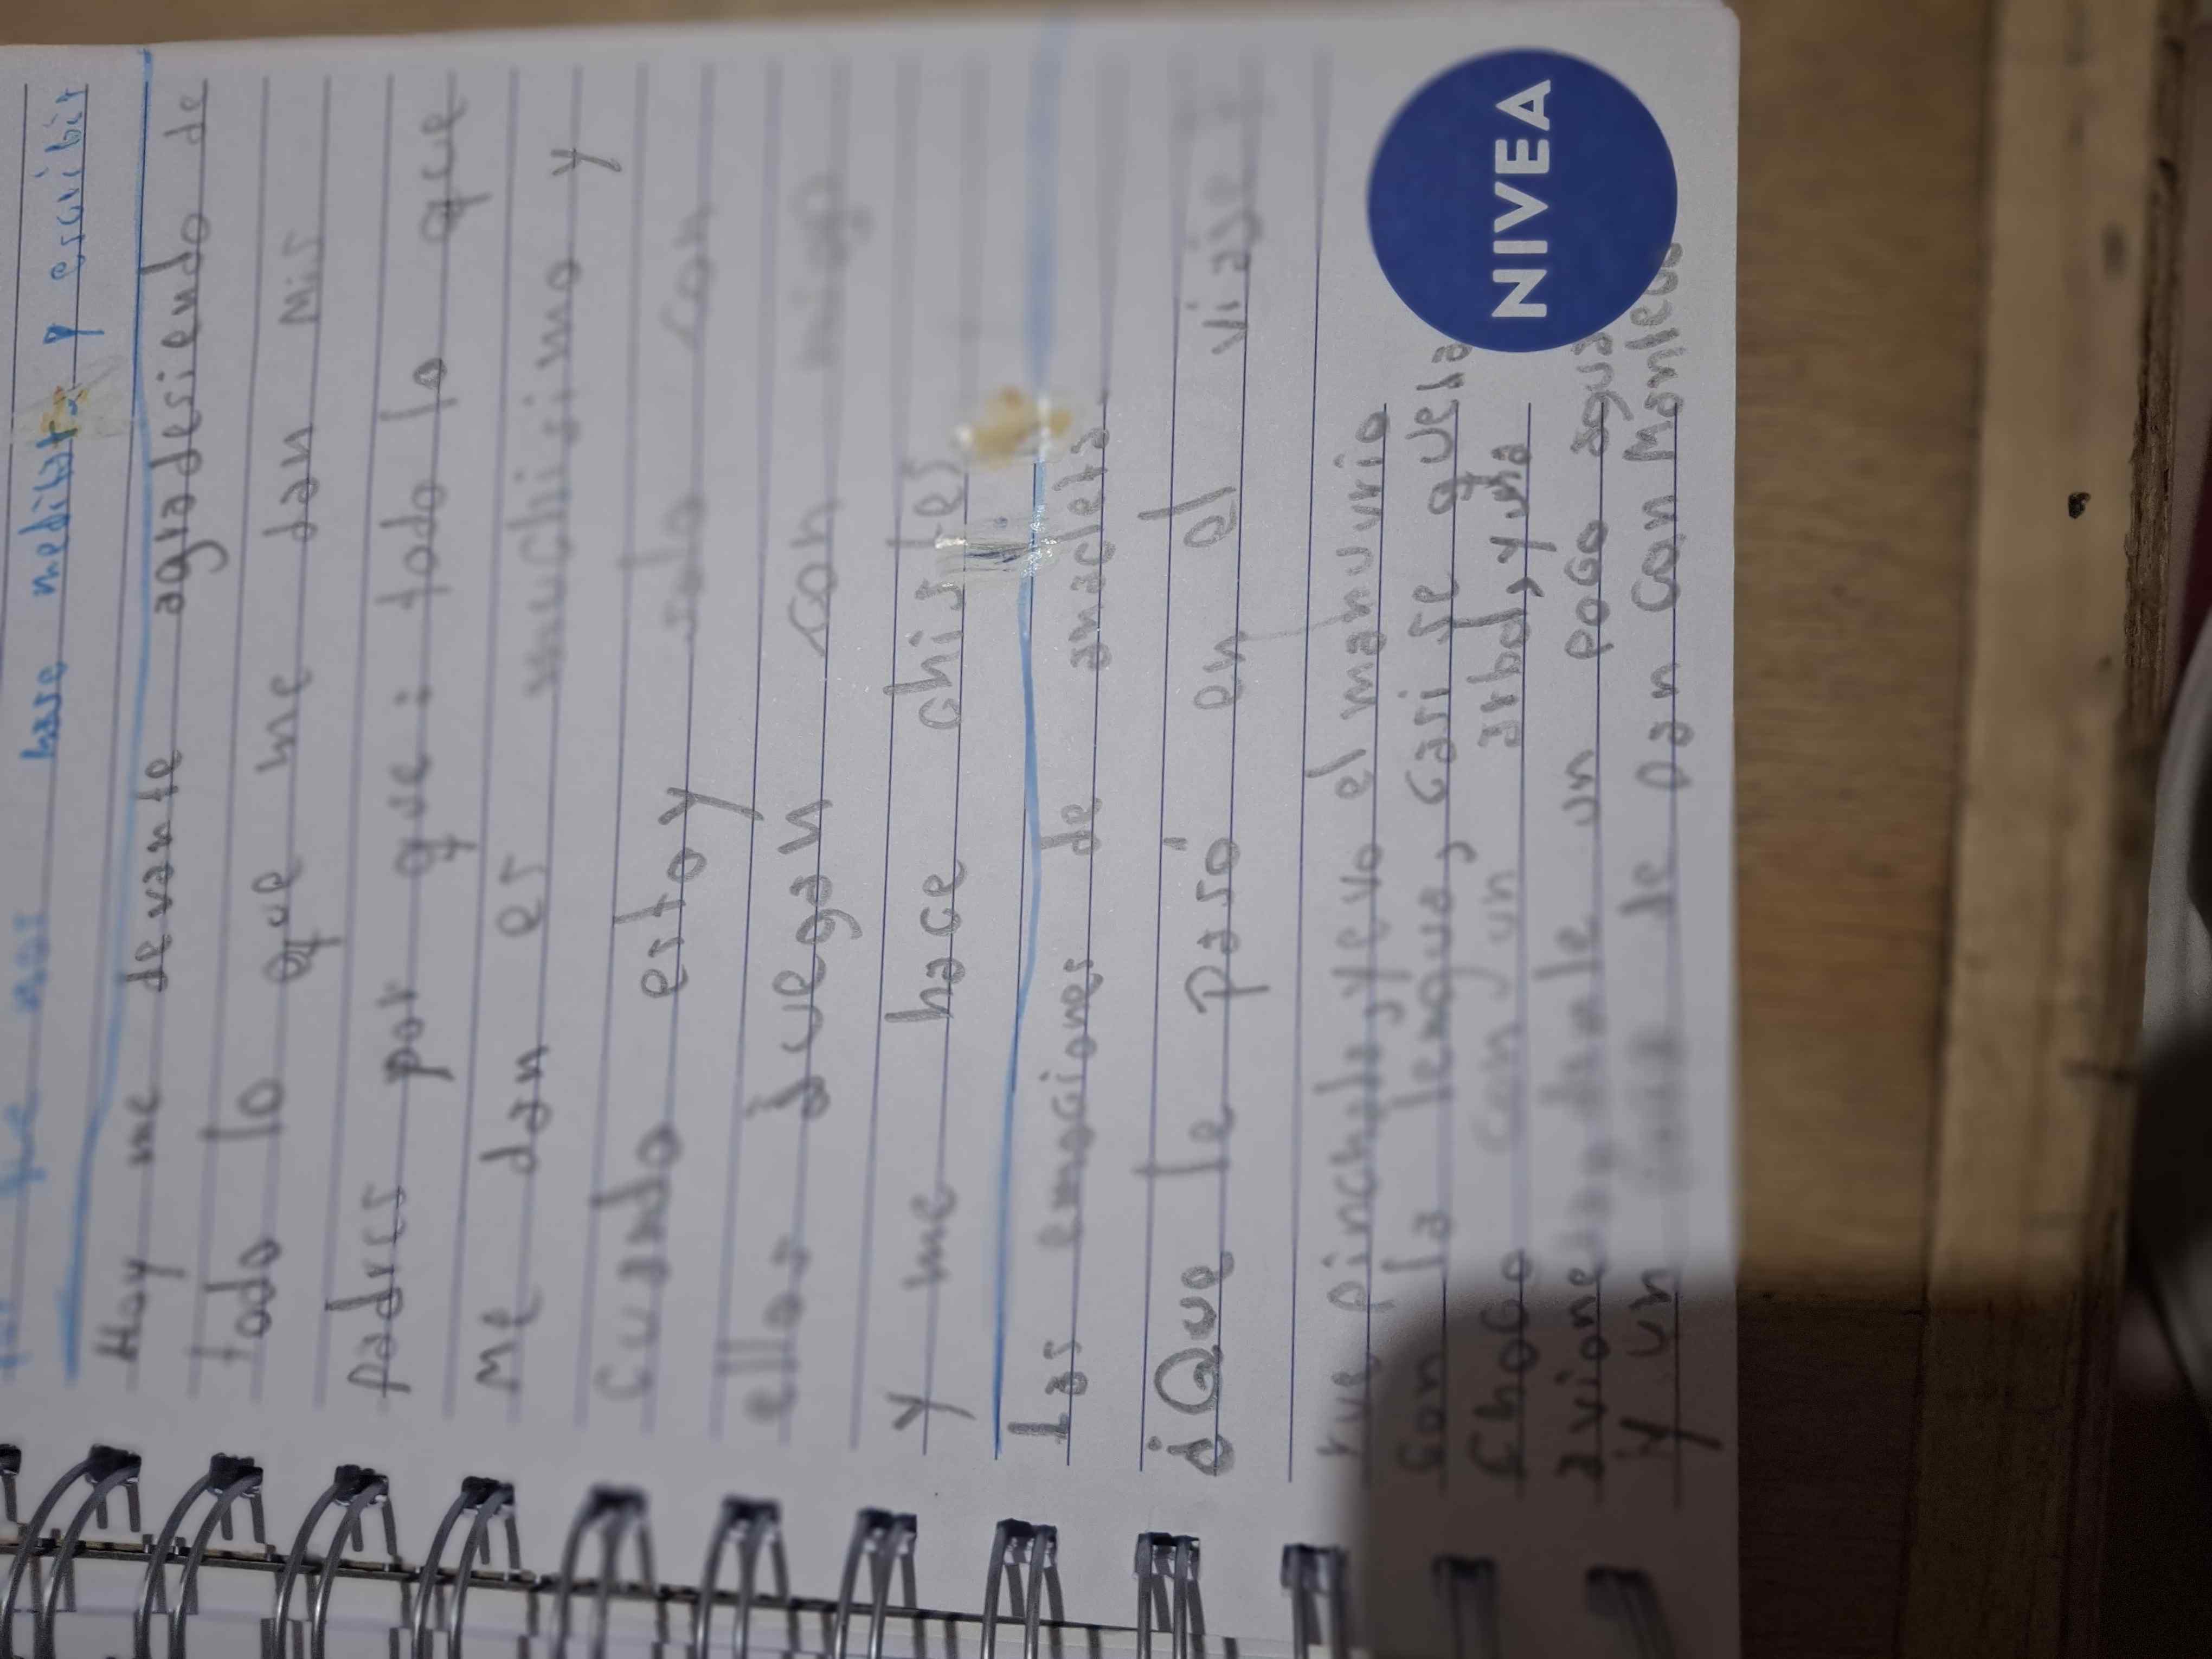 que nos hase meditar y escribir
Hoy me devante agradesiendo de
todo lo que me dan mis
padres por que: todo lo que
Me dan es muchisimo y
Cuando estoy solo con
ellos Juegan con migo
y me hace chistes
Las emociones de anacleta.
¿Que le pasó en el viaje?
rue pinchada, yevo el manuvrio
con la lengua, casi se queba
choco con un arbol, y una
avioneta dale un poco agua
y un de pan con Monteca
NIVEA